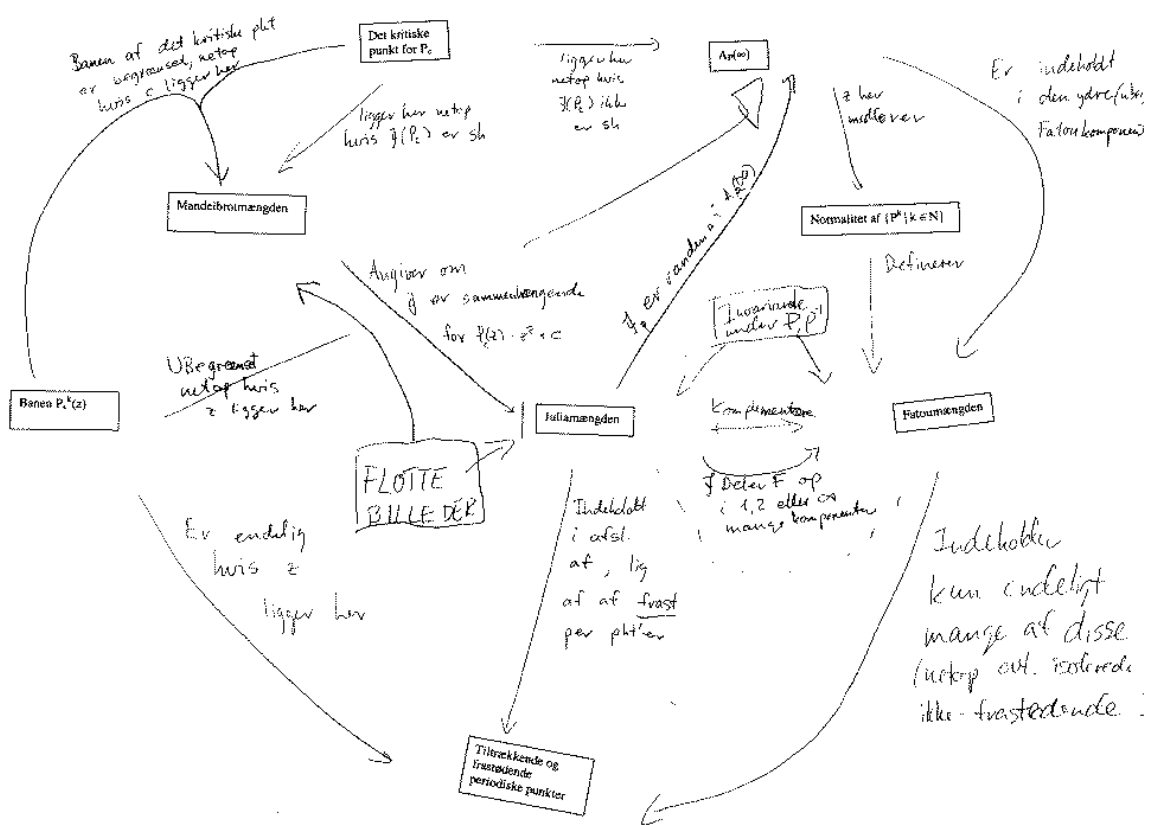 Banen af det kritiske pkt
er begrænsed, netop
hvis c ligger her
Det kritiske
punkt for Pc
ligger her
netop hvis
J(Pc) ikke
er sh
AP(∞)
Er indeholdt
i den ydre
Fatoukomponent
z her
medfører
ligger her netop
hvis J(Pc) er sh
Mandelbrotmængden
Normalitet af {P^k | k ∈ N}
Angiver om
J er sammenhængende
for
J_P er randen af A_P(∞)
Definerer
Invariante
under P, P^-1
UBegrænset
netop hvis
z ligger her
Banen Pc^k(z)
Juliamængden
Komplementære
Fatoumængden
FLOTTE
BILLEDER
J Deler F op
i 1, 2 eller ∞
mange komponenter
Er endelig
hvis z
ligger her
Indeholdt
i afsl.
af , lig
af af frast
per pkt'er
Indeholder
kun endeligt
mange af disse
(netop evt. isolerede
ikke-frastødende
Tiltrækkende og
frastødende
periodiske punkter